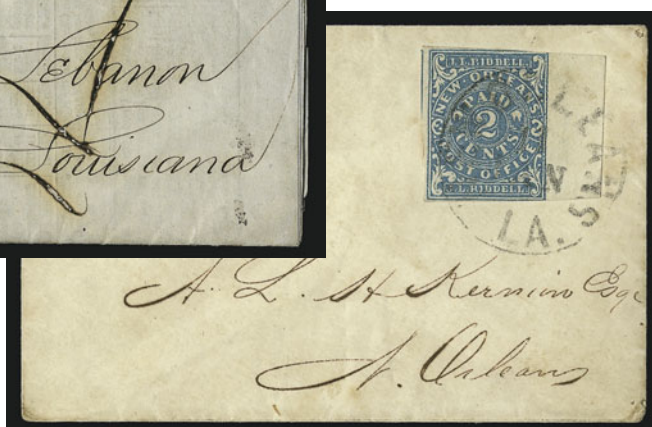 Lebanon
Louisiana
J.L. RIDDELL.
NEW-ORLEANS
PAID
2
CENTS
POST OFFICE
J.L. RIDDELL.
LA.
A. L. H Kernion Esqr
N. Orleans